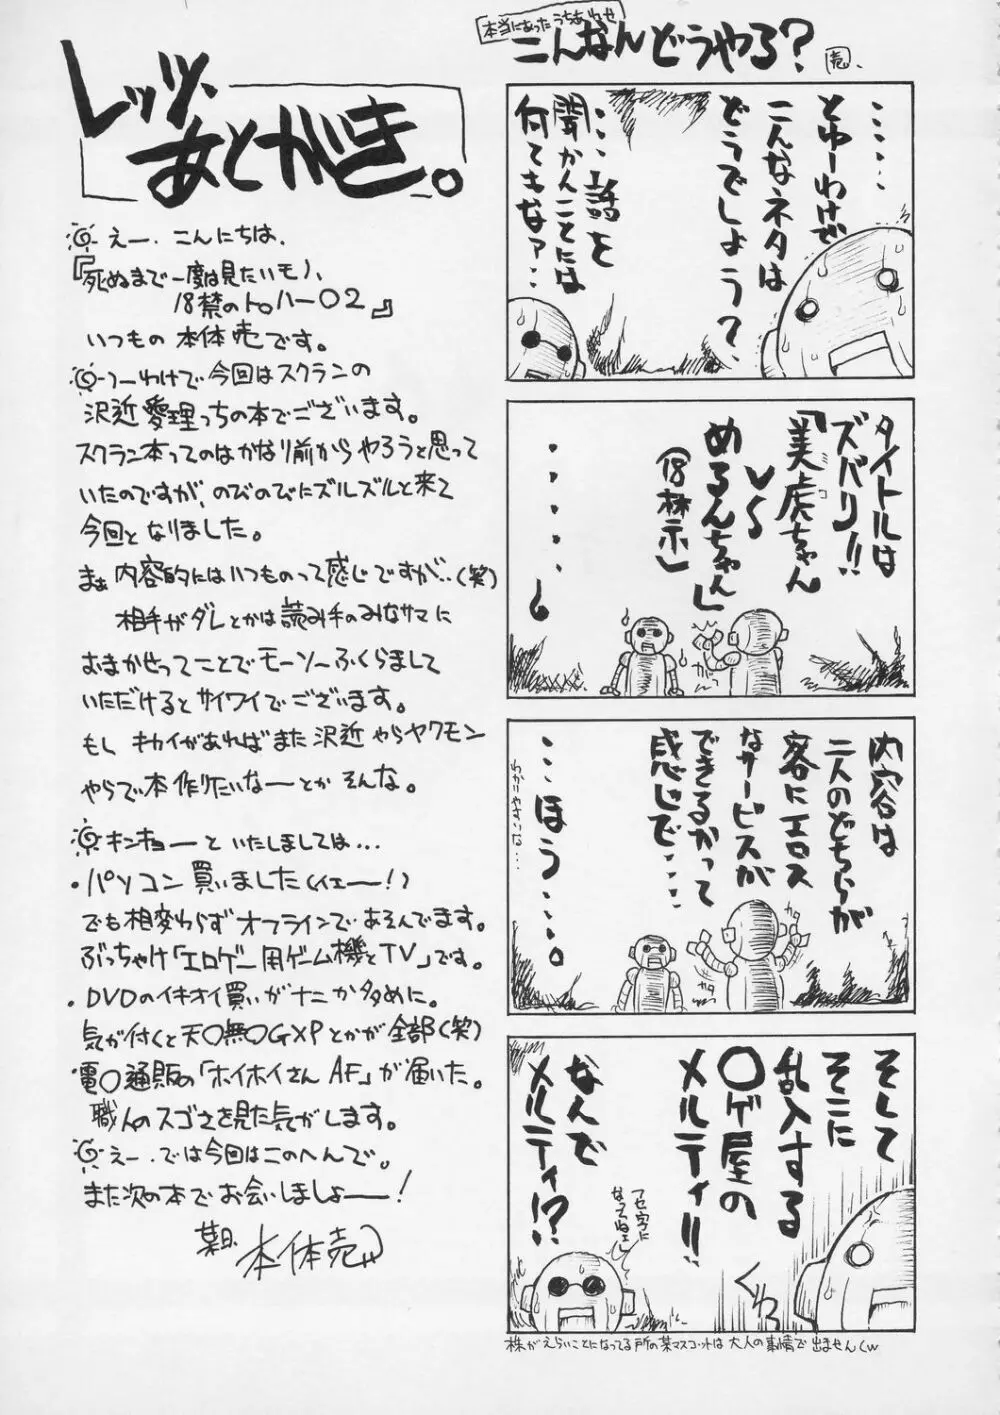 レッツ、
あとがき。
えー、こんにちは、
『死ぬまで一度は見たいモノ、
18禁のトロハー02』
いつもの 本体売です。
つーわけで今回はスクランの
沢近愛理っちの本でございます。
スクラン本ってのはかなり前からやろうと思って
いたのですが、のびのびにズルズルと来て
今回となりました。
まぁ内容的にはいつものって感じですが‥(笑)
相手がダレとかは読み手のみなサマに
おまかせってことでモーソーふくらまして
いただけるとサイワイでございます。
もしキカイがあればまた沢近やらヤクモン
やらで本作りたいなーとかそんな。
キンキョーといたしましては…
・パソコン買いました(イエーー!)
でも相変わらずオフラインであそんでます。
ぶっちゃけ「エロゲー用ゲーム機とTV」です。
・DVDのイキオイ買いがナニか多めに。
気が付くと天〇無〇GXPとかが全部(笑)
電〇通販の「ホイホイさんAF」が届いた。
職人のスゴさを見た気がします。
えー、では今回はこのへんで。
また次の本でお会いしましょーー!
某日、本体売
本当にあったうちあわせ
こんなんどうやろ?
売
‥‥‥
とゆーわけで
こんなネタは
どうでしょう?
‥‥話を
聞かんことには
何てもなァ‥
タイトルは
ズバリ!!
「美虎ちゃん
ミコ
VS
めるんちゃん」
(18禁)
‥‥‥
内容は
二人のどちらが
客にエロス
なサービスが
できるかって
感じで‥‥
‥‥ほう‥‥。
カタ
カタ
そして
そこに
乱入する
〇ゲ屋の
メルティ!!
なんで
メルティ!?
フセ字に
なってねェし
くわっ
株がえらいことになってる所の某マスコットは大人の事情で出ませんw